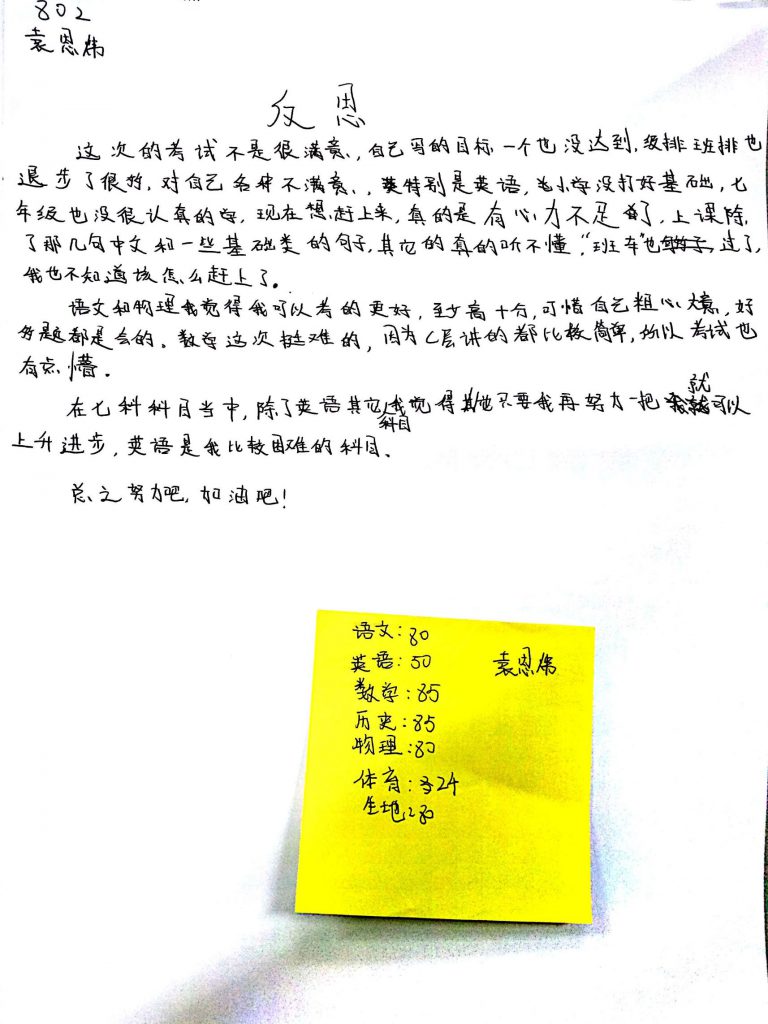 802
袁恩炜
反思
这次的考试不是很满意，自己写的目标一个也没达到，级排班排也
退步了很多，对自己各种不满意，特别是英语，小学没打好基础，七
年级也没很认真的学，现在想赶上来，真的是有心力不足了，上课除
了那几句中文和一些基础类的句子，其它的真的听不懂，“班车”也过了，
我也不知道该怎么赶上了。
语文和物理我觉得我可以考的更好，至少高十分，可惜自己粗心大意，好
多题都是会的。数学这次挺难的，因为C层讲的都比较简单，所以考试也
有点懵。
在七科科目当中，除了英语其它科目我觉得只要我再努力一把就可以
上升进步，英语是我比较困难的科目。
总之努力吧，加油吧！
语文：80
英语：50
袁恩炜
数学：85
历史：85
物理：80
体育：24
生地：80